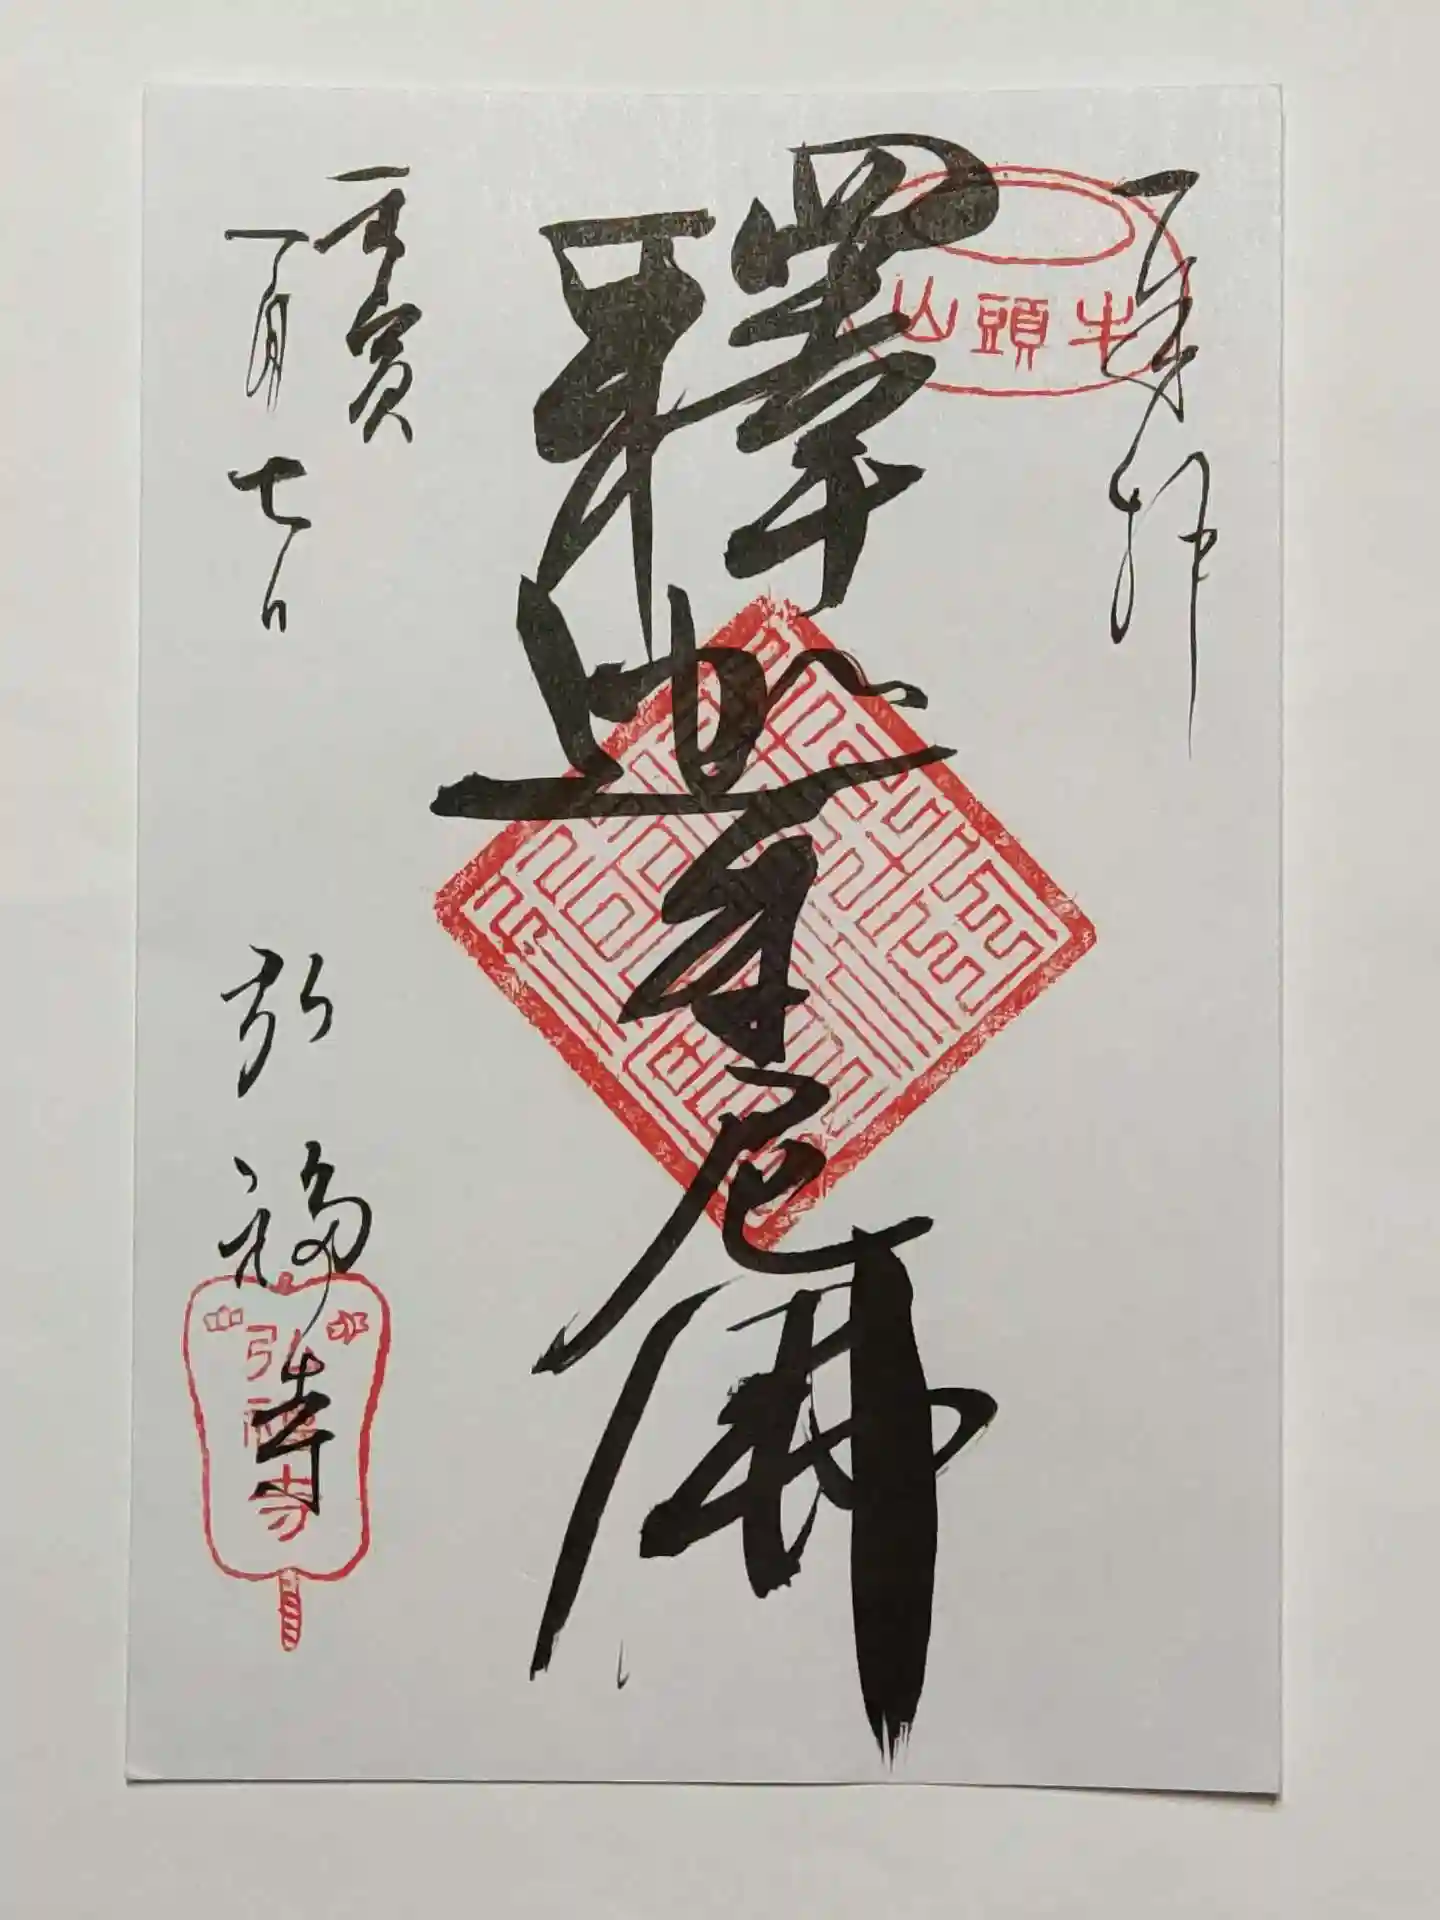 奉拝
牛頭山
釋迦牟尼佛
壬寅
一月七日
弘福寺
弘福寺